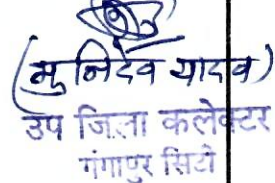 (मुनिदेव यादव)
उप जिला कलेक्टर
गंगापुर सिटी